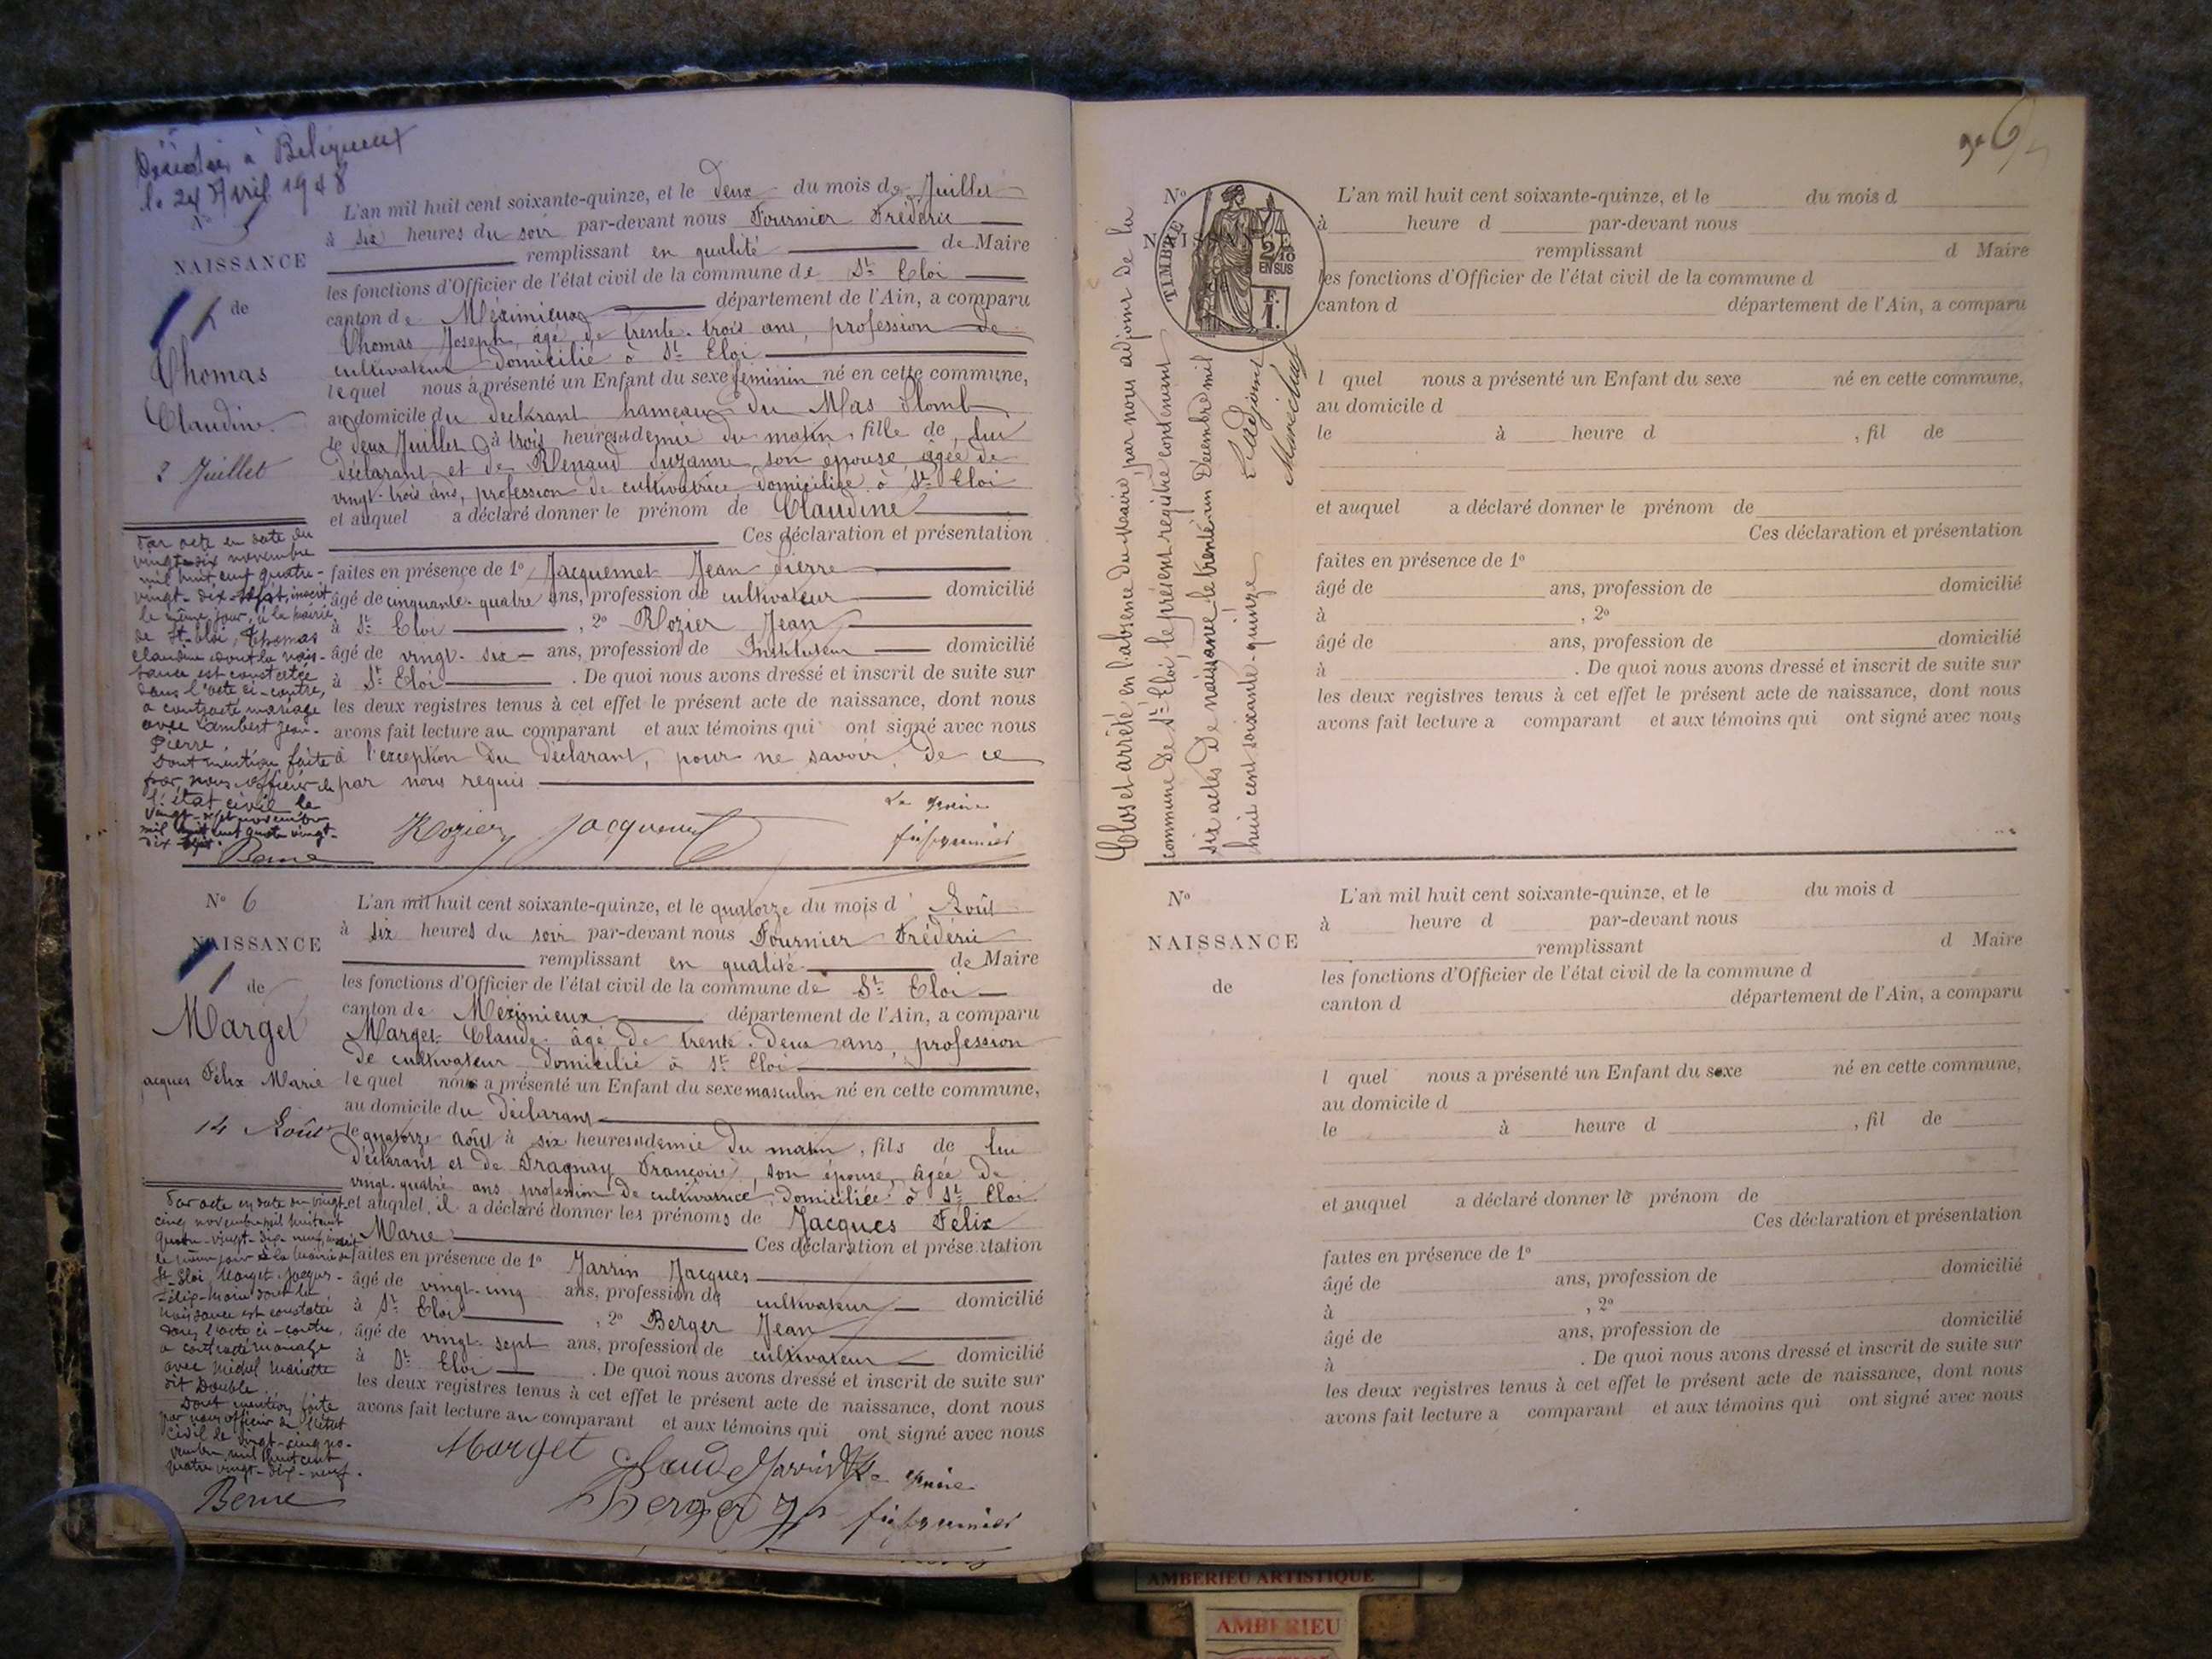 Décédée à Béligneux
le 24 Avril 1948
N° 5
NAISSANCE
de
Thomas
Claudine
2 Juillet
L'an mil huit cent soixante-quinze, et le deux du mois de Juillet
à six heures du soir par-devant nous Fournier Frédéric
remplissant en qualité de Maire
les fonctions d'Officier de l'état civil de la commune de St Eloi
canton de Méximieux département de l'Ain, a comparu
Thomas Joseph, âgé de trente-trois ans, profession de
cultivateur domicilié à St Eloi
lequel nous a présenté un Enfant du sexe féminin né en cette commune,
au domicile du déclarant hameau du Mas Plomb
le deux Juillet à trois heures et demie du matin, fille de lui
déclarant et de Renaud Suzanne, son épouse, âgée de
vingt-trois ans, profession de cultivatrice domiciliée à St Eloi
et auquel a déclaré donner le prénom de Claudine
Ces déclaration et présentation
faites en présence de 1° Jacquemet Jean Pierre
âgé de cinquante-quatre ans, profession de cultivateur domicilié
à St Eloi, 2° Rozier Jean
âgé de vingt-six ans, profession de Instituteur domicilié
à St Eloi. De quoi nous avons dressé et inscrit de suite sur
les deux registres tenus à cet effet le présent acte de naissance, dont nous
avons fait lecture au comparant et aux témoins qui ont signé avec nous
à l'exception du déclarant, pour ne savoir, de ce
par nous requis
Rozier Jacquemet
Le maire
Fournier
Par acte en date du
vingt-six novembre
mil huit cent quatre-
vingt-dix-sept, inscrit
le même jour, à la mairie
de St-Eloi, Thomas
Claudine dont la nais-
sance est constatée
dans l'acte ci-contre,
a contracté mariage
avec Lambert Jean-
Pierre.
Dont mention faite
par nous officier de
l'état civil le
vingt-sept novembre
mil huit cent quatre vingt-
dix-sept.
Berne
N° 6
NAISSANCE
de
Marget
Jacques Félix Marie
14 Août
L'an mil huit cent soixante-quinze, et le quatorze du mois d'Août
à six heures du soir par-devant nous Fournier Frédéric
remplissant en qualité de Maire
les fonctions d'Officier de l'état civil de la commune de St Eloi
canton de Méximieux département de l'Ain, a comparu
Marget Claude âgé de trente-deux ans, profession
de cultivateur domicilié à St Eloi
lequel nous a présenté un Enfant du sexe masculin né en cette commune,
au domicile du déclarant
le quatorze août à six heures et demie du matin, fils de lui
déclarant et de Dragnay Françoise, son épouse, âgée de
vingt-quatre ans profession de cultivatrice domiciliée à St Eloi
et auquel il a déclaré donner les prénoms de Jacques Félix
Marie Ces déclaration et présentation
faites en présence de 1° Jarrin Jacques
âgé de vingt-cinq ans, profession de cultivateur domicilié
à St Eloi, 2° Berger Jean
âgé de vingt-sept ans, profession de cultivateur domicilié
à St Eloi. De quoi nous avons dressé et inscrit de suite sur
les deux registres tenus à cet effet le présent acte de naissance, dont nous
avons fait lecture au comparant et aux témoins qui ont signé avec nous
Marget Claude Jarrin Le maire
Berger Fournier
Par acte en date du vingt-
cinq novembre mil huit cent
quatre-vingt-dix-neuf, inscrit
le même jour à la mairie de
St-Eloi, Marget Jacques-
Félix-Marie dont la
naissance est constatée
dans l'acte ci-contre,
a contracté mariage
avec Michel Mariette
dit Double.
Dont mention faite
par nous officier de l'état
civil le vingt-cinq no-
vembre mil huit cent
quatre vingt-dix-neuf.
Berne
Clos et arrêté en l'absence du Maire, par nous adjoint de la
commune de St Eloi, le présent registre contenant
six actes de naissance le trente-un Décembre mil
huit cent soixante-quinze
L'adjoint
TIMBRE
2/10
EN SUS
F.
1.
N°
NAISSANCE
L'an mil huit cent soixante-quinze, et le du mois d
à heure d par-devant nous
remplissant d Maire
les fonctions d'Officier de l'état civil de la commune d
canton d département de l'Ain, a comparu
l quel nous a présenté un Enfant du sexe né en cette commune,
au domicile d
le à heure d , fil de
et auquel a déclaré donner le prénom de
Ces déclaration et présentation
faites en présence de 1°
âgé de ans, profession de domicilié
à , 2°
âgé de ans, profession de domicilié
à . De quoi nous avons dressé et inscrit de suite sur
les deux registres tenus à cet effet le présent acte de naissance, dont nous
avons fait lecture a comparant et aux témoins qui ont signé avec nous
N°
NAISSANCE
de
L'an mil huit cent soixante-quinze, et le du mois d
à heure d par-devant nous
remplissant d Maire
les fonctions d'Officier de l'état civil de la commune d
canton d département de l'Ain, a comparu
l quel nous a présenté un Enfant du sexe né en cette commune,
au domicile d
le à heure d , fil de
et auquel a déclaré donner le prénom de
Ces déclaration et présentation
faites en présence de 1°
âgé de ans, profession de domicilié
à , 2°
âgé de ans, profession de domicilié
à . De quoi nous avons dressé et inscrit de suite sur
les deux registres tenus à cet effet le présent acte de naissance, dont nous
avons fait lecture a comparant et aux témoins qui ont signé avec nous
AMBERIEU ARTISTIQUE
AMBERIEU